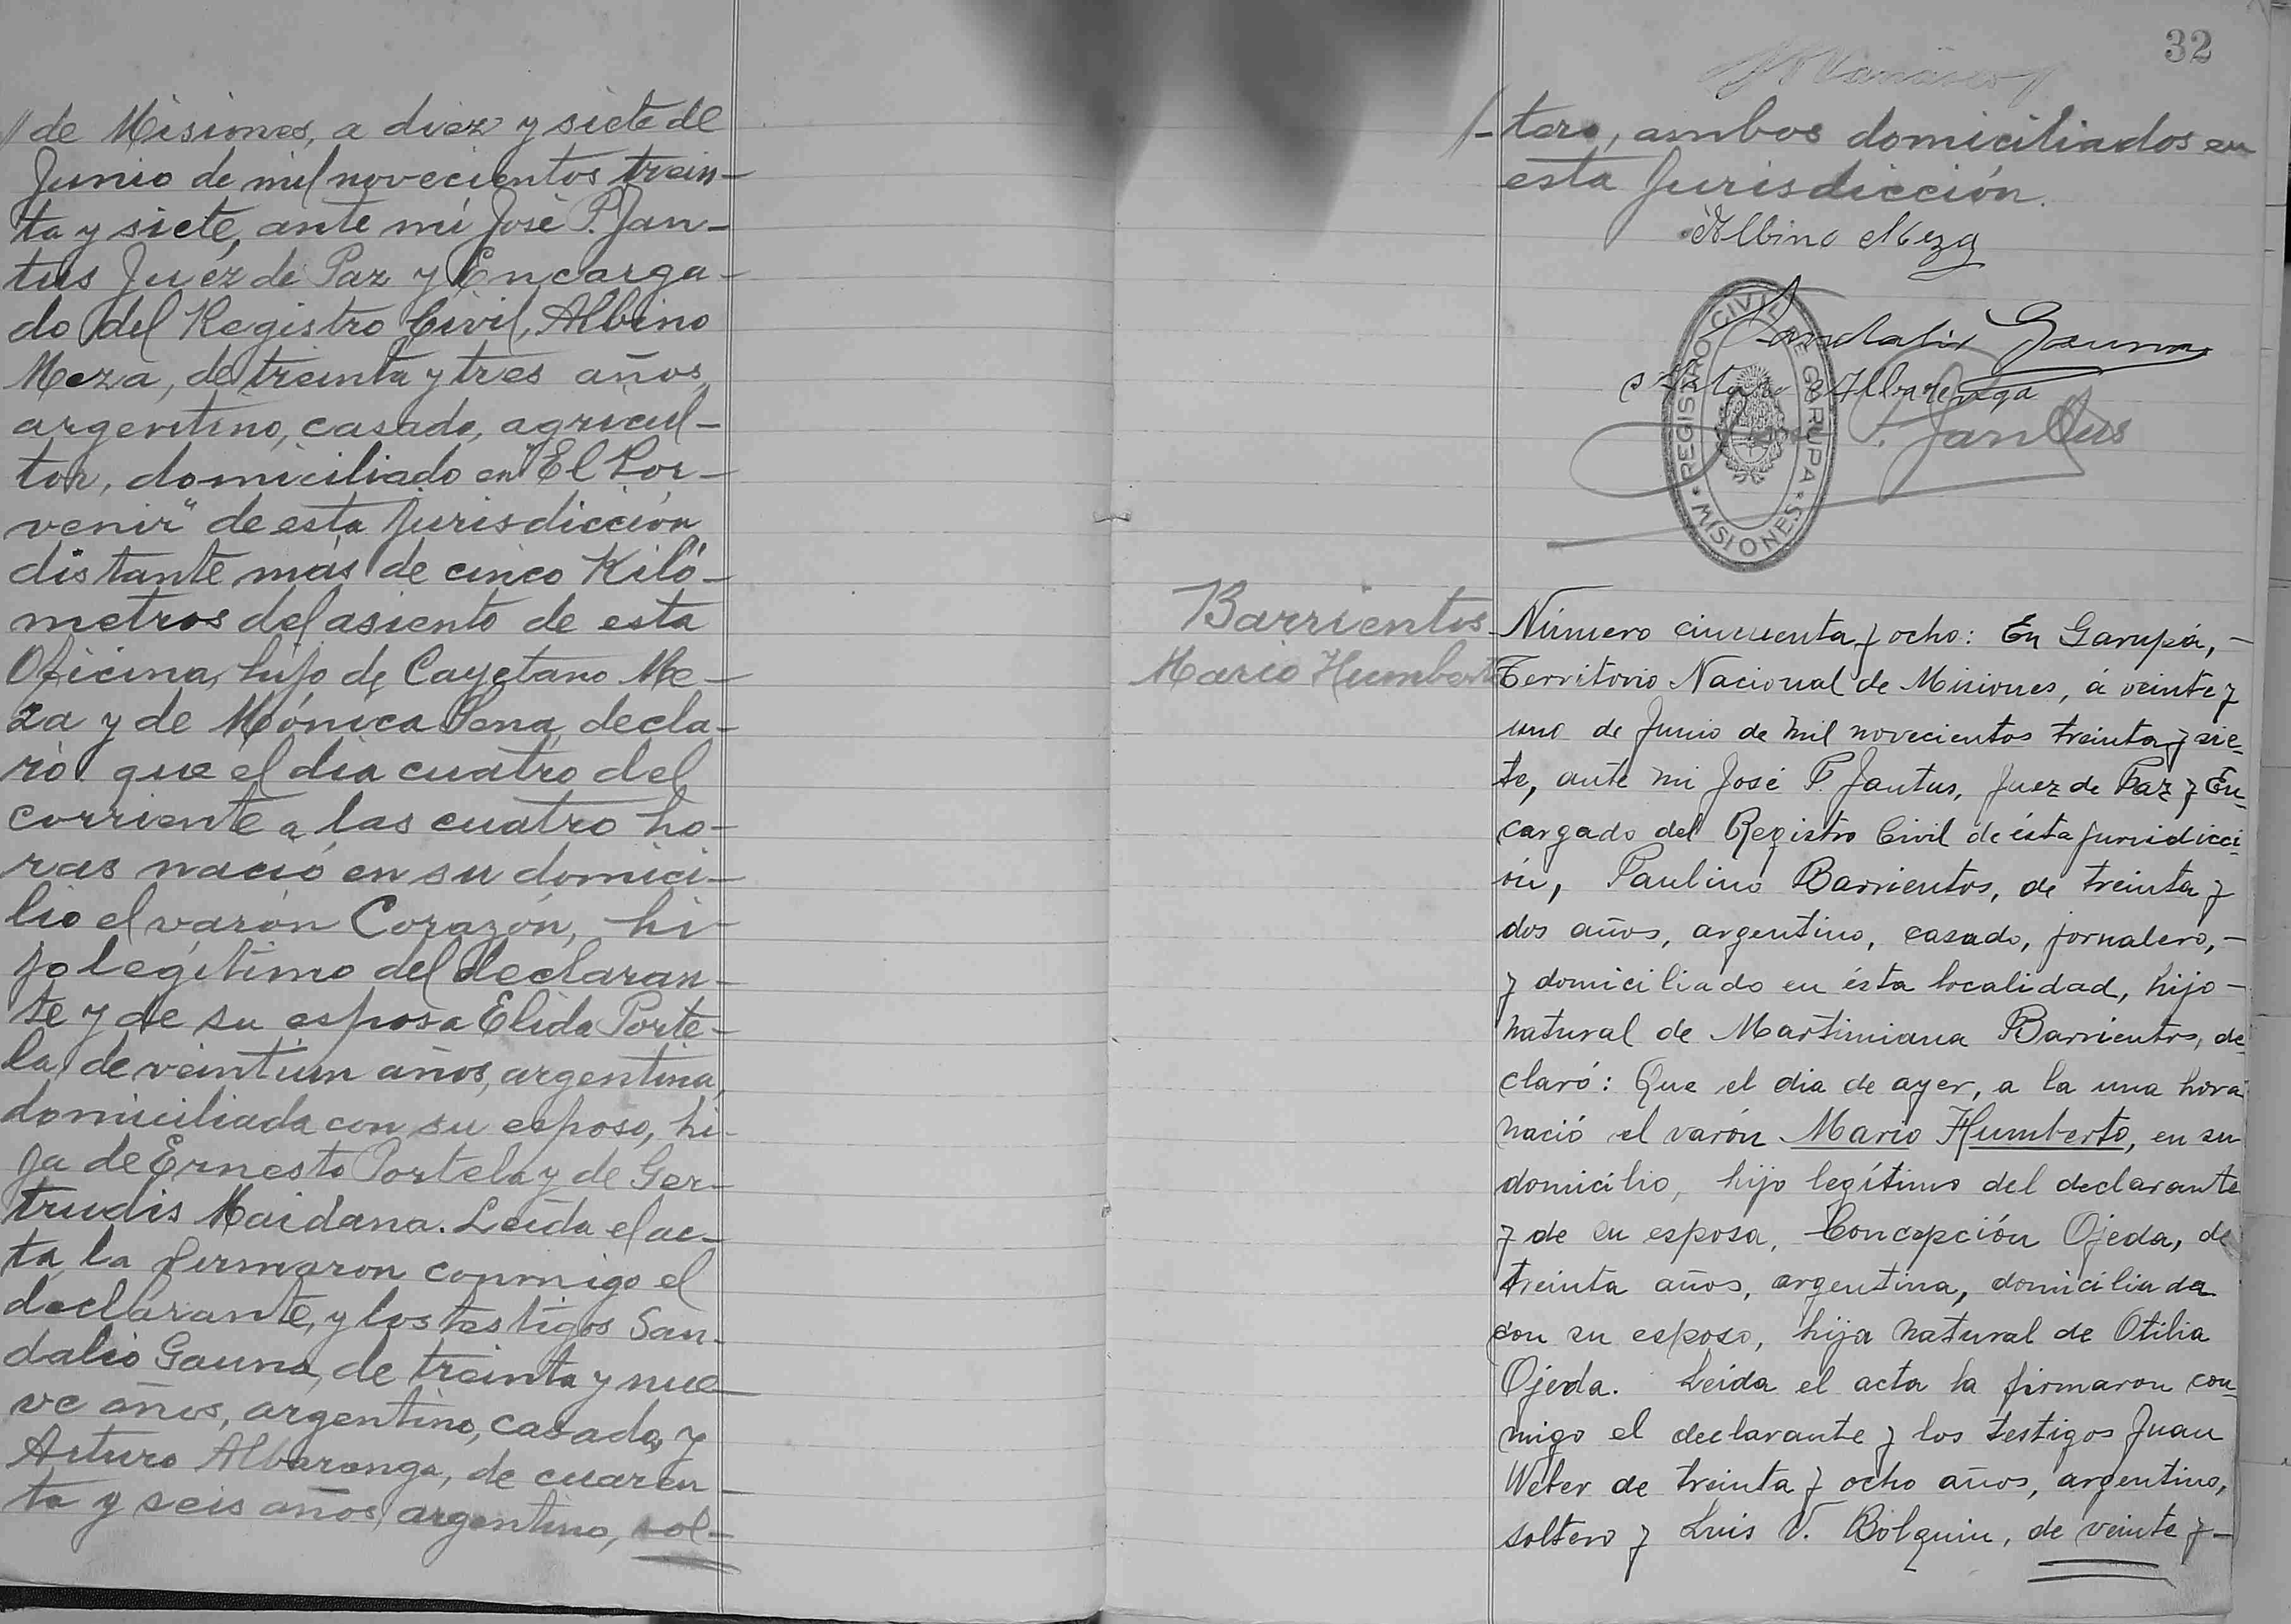 // de Misiones, a diez y siete de
Junio de mil novecientos trein-
ta y siete, ante mí José P. Jan-
tus Juez de Paz y Encarga-
do del Registro Civil, Albino
Meza, de treinta y tres años,
argentino, casado, agricul-
tor, domiciliado en "El Por-
venir" de esta Jurisdicción
distante más de cinco Kiló-
metros del asiento de esta
Oficina, hijo de Cayetano Me-
za y de Mónica Sena, decla-
ró: que el dia cuatro del
corriente a las cuatro ho-
ras nació en su domici-
lio el varón Corazón, hi-
jo legítimo del declaran-
te y de su esposa Elida Porte-
la, de veintiun años, argentina,
domiciliada con su esposo, hi-
ja de Ernesto Portela y de Ger-
trudis Maidana. Leída el ac-
ta, la firmaron conmigo el
declarante, y los testigos San-
dalio Gauna, de treinta y nue-
ve años, argentino, casado, y
Arturo Albarenga, de cuaren-
ta y seis años, argentino, sol-
32
//-tero, ambos domiciliados en
esta Jurisdicción.
Albino Meza
Sandalio Gauna
Arturo Albarenga
P. Jantus
REGISTRO CIVIL DE GARUPA
MISIONES
Barrientos
Mario Humberto
Número cincuenta y ocho: En Garupá,-
Territorio Nacional de Misiones, á veinte y
uno de Junio de mil novecientos treinta y sie-
te, ante mi José P. Jantus, Juez de Paz y En-
cargado del Registro Civil de ésta jurisdicci-
ón, Paulino Barrientos, de treinta y
dos años, argentino, casado, jornalero,-
y domiciliado en ésta localidad, hijo-
natural de Martimiana Barrientos, de-
claró: Que el dia de ayer, a la una hora
nació el varón Mario Humberto, en su
domicilio, hijo legítimo del declarante
y de su esposa, Concepción Ojeda, de
treinta años, argentina, domiciliada
con su esposo, hija natural de Otilia
Ojeda. Leida el acta la firmaron con-
migo el declarante y los testigos Juan
Weber de treinta y ocho años, argentino,
soltero y Luis V. Bolquin, de veinte y-